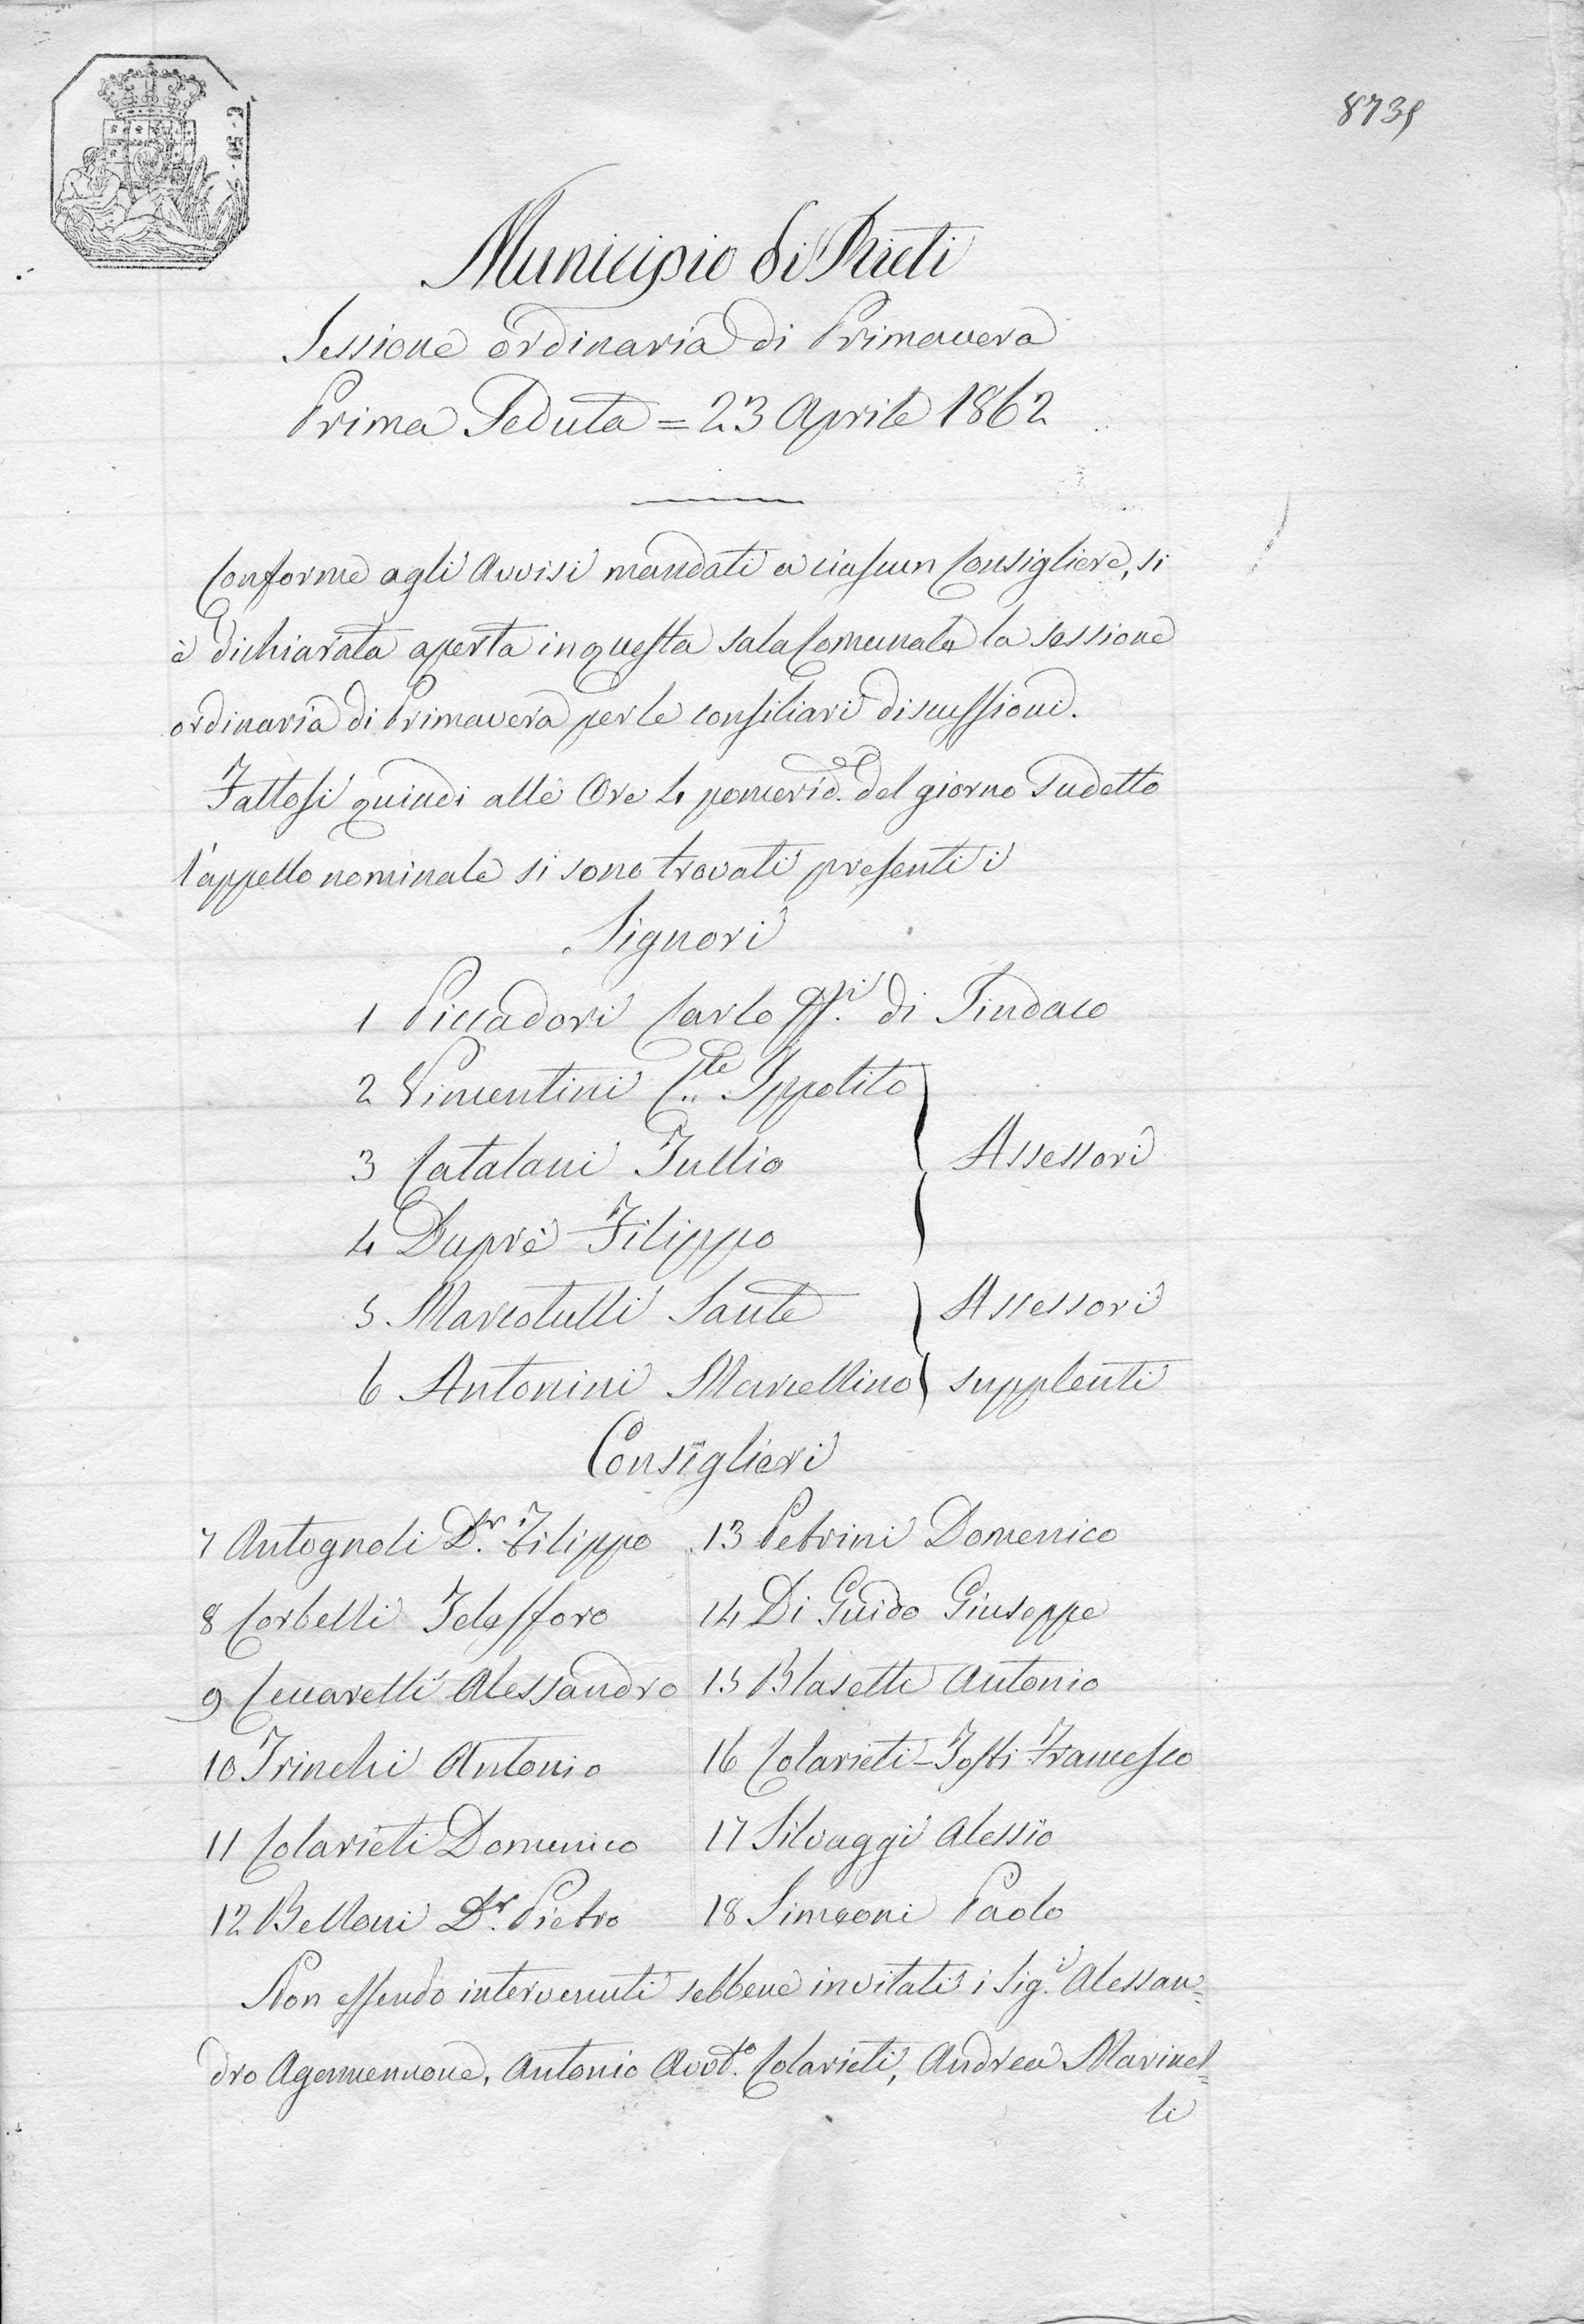 8735
Municipio di Rieti
Sessione ordinaria di Primavera
Prima Seduta = 23 Aprile 1862
Conforme agli Avvisi mandati a ciascun Consigliere, si
è dichiarata aperta in questa sala Comunale la sessione
ordinaria di Primavera per le consiliari discussioni.
Fattosi quindi alle Ore 4 pomerid. del giorno Sudetto
l'appello nominale si sono trovati presenti i
Signori
1 Piccadori Carlo ff.i di Sindaco
2 Vincentini C.te Ippolito
3 Catalani Tullio } Assessori
4 Duprè Filippo
5 Marcotulli Sante } Assessori
6 Antonini Marcellino } supplenti
Consiglieri
7 Antognoli D.r Filippo
8 Corbelli Telesforo
9 Ceccarelli Alessandro
10 Trinchi Antonio
11 Colarieti Domenico
12 Belloni D.r Pietro
13 Petrini Domenico
14 Di Guido Giuseppe
15 Blasetti Antonio
16 Colarieti-Tosti Francesco
17 Silvaggi Alessio
18 Simeoni Paolo
Non essendo intervenuti sebbene invitati i Sig.i Alessan=
dro Agamennone, Antonio Avv.to Colarieti, Andrea Marinel=
li